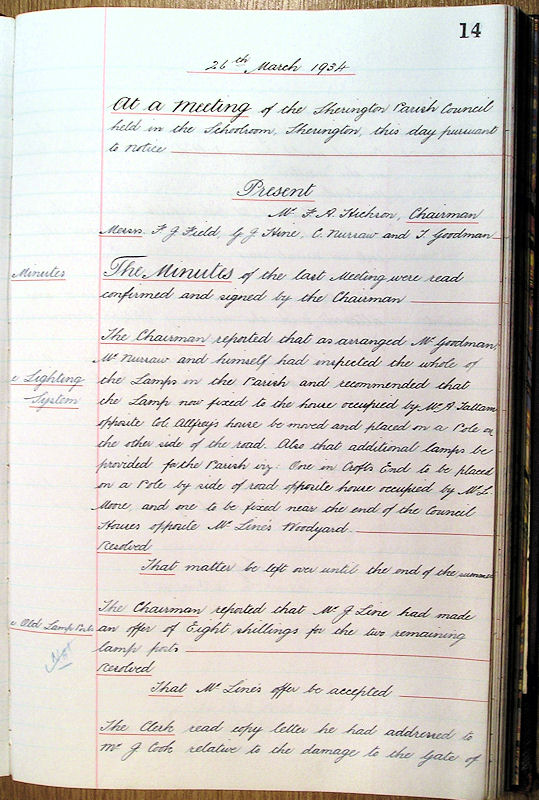 14
26th March 1934
At a Meeting of the Sherington Parish Council
held in the Schoolroom, Sherington, this day pursuant
to notice
Present
Mr F. A. Hickson, Chairman
Messrs. F J Field, G J Hine, C. Nursaw and T Goodman
Minutes
The Minutes of the last Meeting were read
confirmed and signed by the Chairman
The Chairman reported that as arranged Mr Goodman,
Mr Nursaw and himself had inspected the whole of
e Lighting
System
the Lamps in the Parish and recommended that
the Lamp now fixed to the house occupied by Mr A Tattam
opposite Col. Allfrey's house be moved and placed on a Pole on
the other side of the road. Also that additional lamps be
provided for the Parish viz: One in Crofts End to be placed
on a Pole by side of road opposite house occupied by Mr L.
Moore, and one to be fixed near the end of the Council
Houses opposite Mr Line's Woodyard.
Resolved
That matter be left over until the end of the summer
The Chairman reported that Mr J Line had made
e Old Lamp Posts
an offer of Eight shillings for the two remaining
lamp posts
Resolved
That Mr Line's offer be accepted
The Clerk read copy letter he had addressed to
Mr J Cook relative to the damage to the Gate of